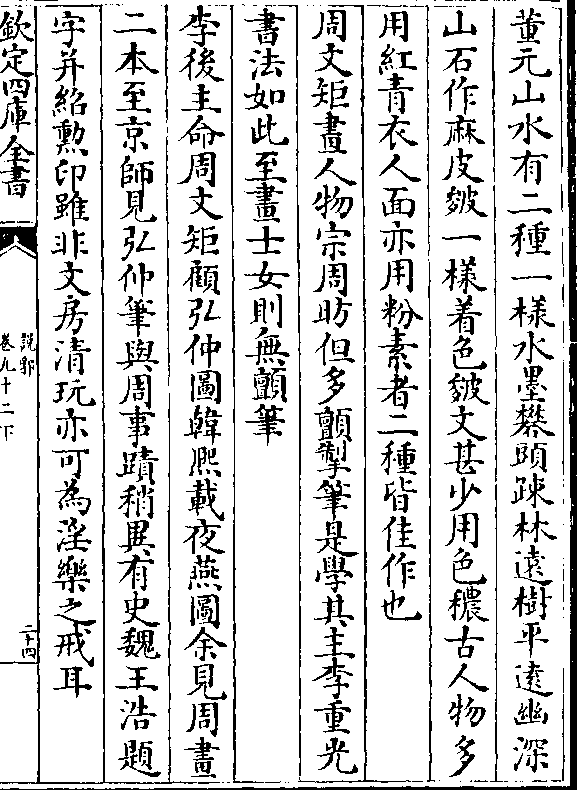 董元山水有二種一様水墨礬頭疎林遠樹平遠幽深
山石作麻皮皴一様着色皴文甚少用色穠古人物多
用紅青衣人面亦用粉素者二種皆佳作也
周文矩畫人物宗周昉但多顫掣筆是學其主李重光
書法如此至畫士女則無顫筆
李後主命周文矩顧弘仲圖韓熙載夜燕圖余見周畫
二本至京師見弘仲筆與周事蹟稍異有史魏王浩題
字并紹勲印雖非文房清玩亦可為淫樂之戒耳
欽定四庫全書
説郛
卷九十二下
二十四